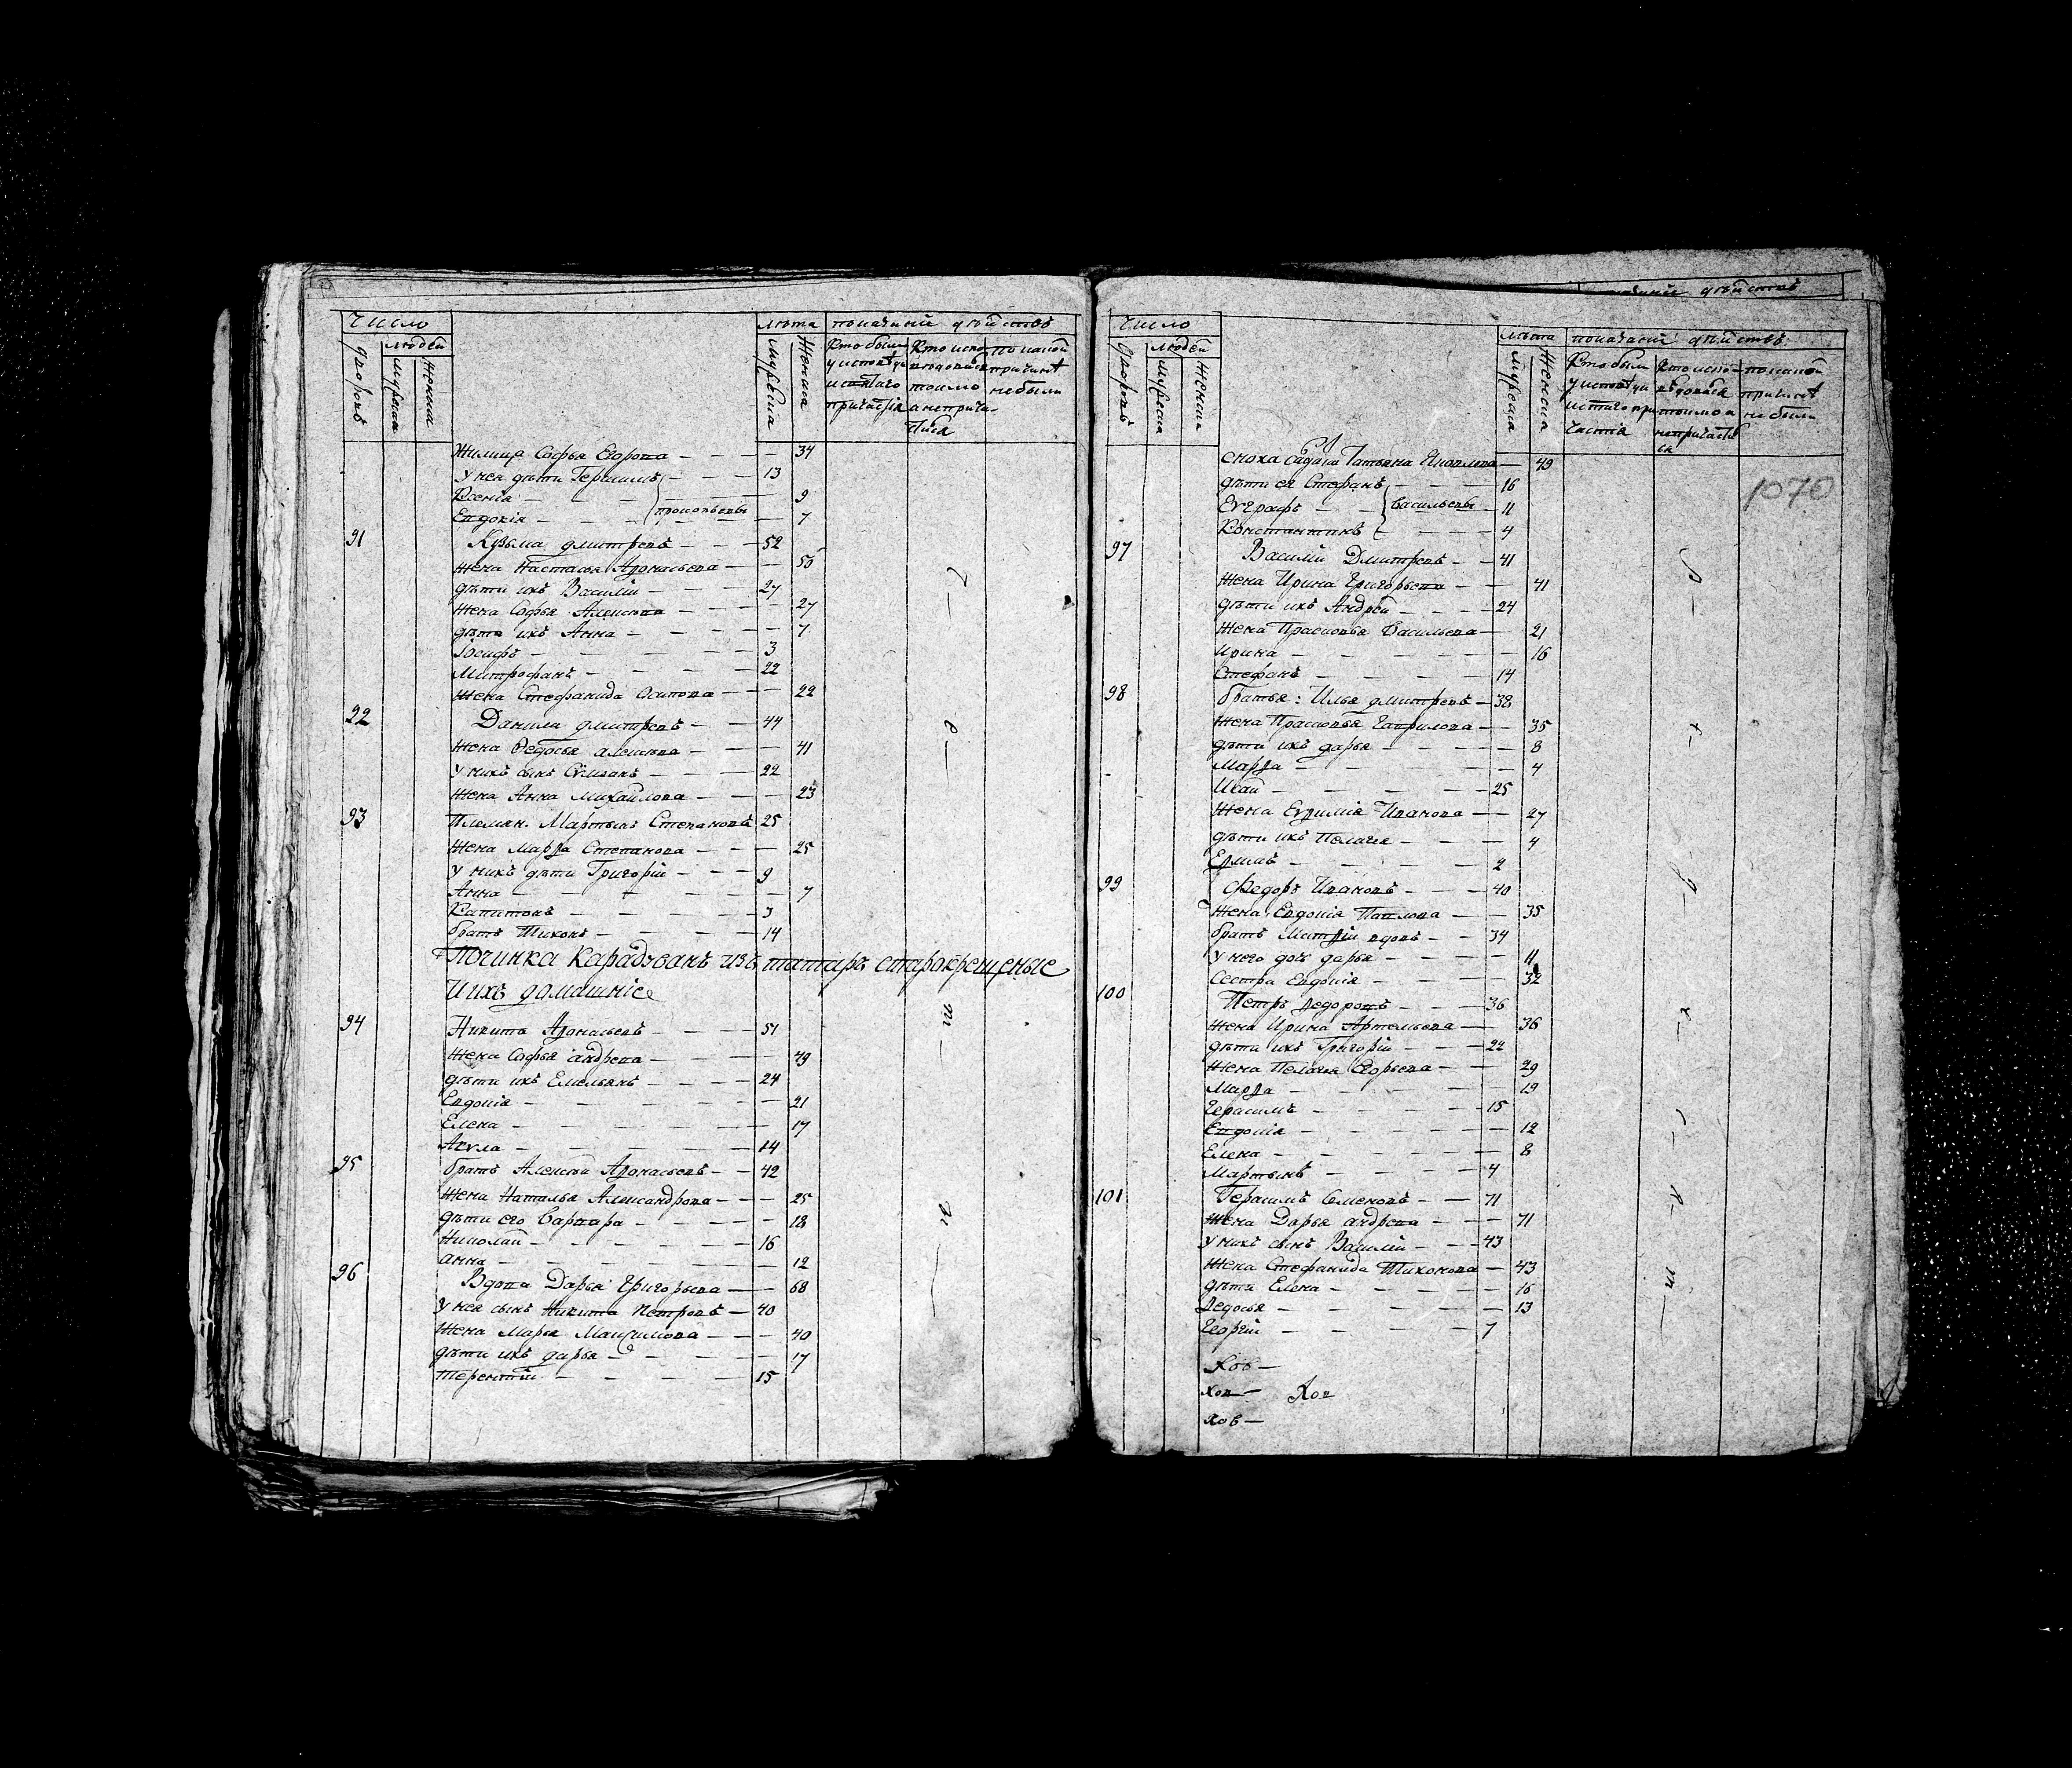 Число
людей
дворовъ
мужеска
женска
лѣта
мужеска
женска
покаянiй дѣйствъ
Кто были у исповѣди и святаго причастiя
Кто исповѣдовался токмо а не причастился
по какой причинѣ не были
Жилица Софья Егорова — 34
у нея дѣти Герасимъ — 13
Ксенiя — 9
Евдокiя — 7
Прокопьевы
91 Кузьма дмитревъ — 52
жена Настасья Афонасьева — 55
дѣти ихъ Василiй — 27
жена Софья Алексѣева — 27
дѣти ихъ Анна — 7
Iосифъ — 3
Митрофанъ — 22
жена Стефанида Осипова — 22
92 Данила дмитревъ — 44
жена Федосья алексѣева — 41
у нихъ сынъ Сѵмеонъ — 22
жена Анна Михайлова — 23
93 Племян. Мартынъ Степановъ 25
жена Марѳа Степанова — 25
у нихъ дѣти Григорiй — 9
Анна — 7
Капитонъ — 3
братъ Тихонъ — 14
Починка Карадувань изъ татаръ старокрещеные
и ихъ домашнiе
94 Никита Афонасьевъ — 51
жена Софья андреева — 49
дѣти ихъ Емельянъ — 24
Евдокiя — 21
Елена — 17
Акѵла — 14
95 братъ Алексѣй Афонасьевъ — 42
жена Наталья Александрова — 25
дѣти его Варвара — 18
Николай — 16
анна — 12
96 Вдова Дарья Григорьева — 68
у нея сынъ Никита Петровъ — 40
жена Марья Максимова — 40
дѣти ихъ дарья — 17
Терентiй — 15
Число
людей
дворовъ
мужеска
женска
лѣта
мужеска
женска
покаянiй дѣйствъ
Кто были у исповѣди и святаго причастiя
Кто исповѣдовался токмо а не причастился
по какой причинѣ не были
1070
сноха вдова Татьяна Яковлева — 49
дѣти ея Стефанъ — 16
Евграфъ — 11
Константинъ — 4
Васильевы
97 Василiй Дмитревъ — 41
жена Ирина Григорьева — 41
дѣти ихъ Андрей — 24
жена Прасковья Васильева — 21
ирина — 16
Стефанъ — 14
98 братья: Илья дмитревъ — 38
жена Прасковья Гаврилова — 35
дѣти ихъ дарья — 8
Марѳа — 4
Иванъ — 25
жена Евѳимiя Иванова — 27
дѣти ихъ Пелагея — 4
Ефимъ — 2
99 Федоръ Ивановъ — 40
жена Евдокiя Павлова — 35
братъ Митрiй вдовъ — 34
у него дочь дарья — 11
сестра Евдокiя — 32
100 Петръ Федоровъ — 36
жена Ирина Артемьева — 36
дѣти ихъ Григорiй — 22
жена Пелагея Егорьева — 29
Марѳа — 19
Герасимъ — 15
Евдокiя — 12
Елена — 8
Мартынъ — 4
101 Герасимъ Семеновъ — 71
жена Дарья андреева — 71
у нихъ сынъ Василiй — 43
жена Стефанида Тихонова — 43
дѣти Елена — 16
Федосья — 13
Георгiй — 7